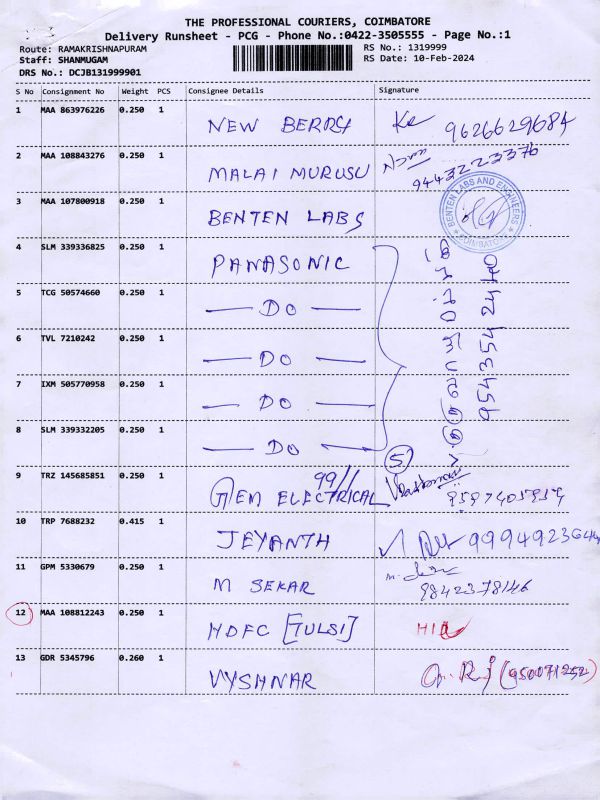 THE PROFESSIONAL COURIERS, COIMBATORE
Delivery Runsheet - PCG - Phone No.:0422-3505555 - Page No.:1
Route: RAMAKRISHNAPURAM RS No.: 1319999
Staff: SHANMUGAM RS Date: 10-Feb-2024
DRS No.: DCJB131999901
S No Consignment No Weight PCS Consignee Details Signature
1 MAA 863976226 0.250 1 NEW BERRY 9626629684
2 MAA 108843276 0.250 1 MALAI MURUSU 9443223376
3 MAA 107800918 0.250 1 BENTEN LABS
BENTEN LABS AND ENGINEERS COIMBATORE
4 SLM 339336825 0.250 1 PANASONIC 9543542440
5 TCG 50574660 0.250 1 — DO —
6 TVL 7210242 0.250 1 — DO —
7 IXM 505770958 0.250 1 — DO —
8 SLM 339332205 0.250 1 — DO — 5
9 TRZ 145685851 0.250 1 GEM ELECTRICAL 99//
10 TRP 7688232 0.415 1 JEYANTH
11 GPM 5330679 0.250 1 M SEKAR 9842378146
12 MAA 108812243 0.250 1 HDFC [TULSI]
13 GDR 5345796 0.260 1 VYSHNAR